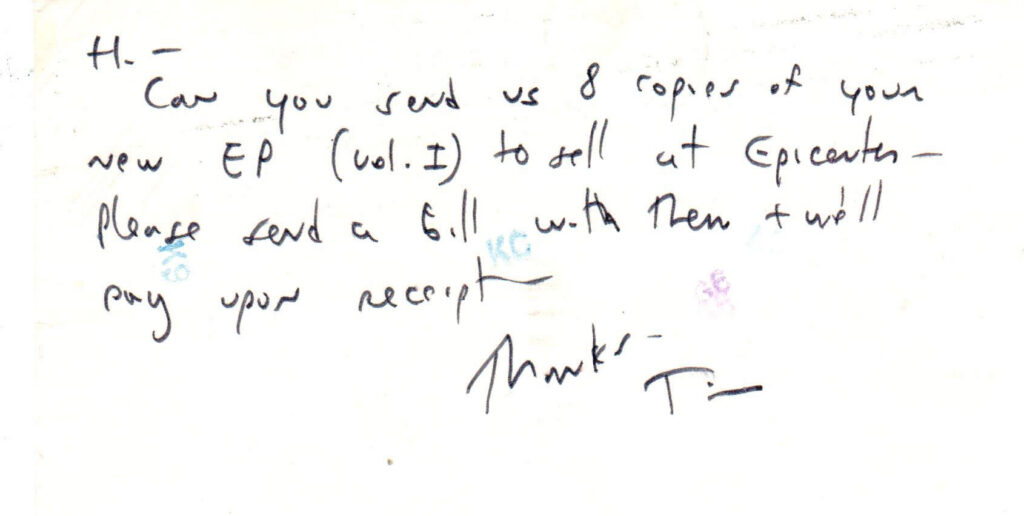 H. –
Can you send us 8 copies of your
new EP (vol. I) to sell at Epicenter –
Please send a bill with them + we'll
pay upon receipt –
KG
Thanks –
Tim